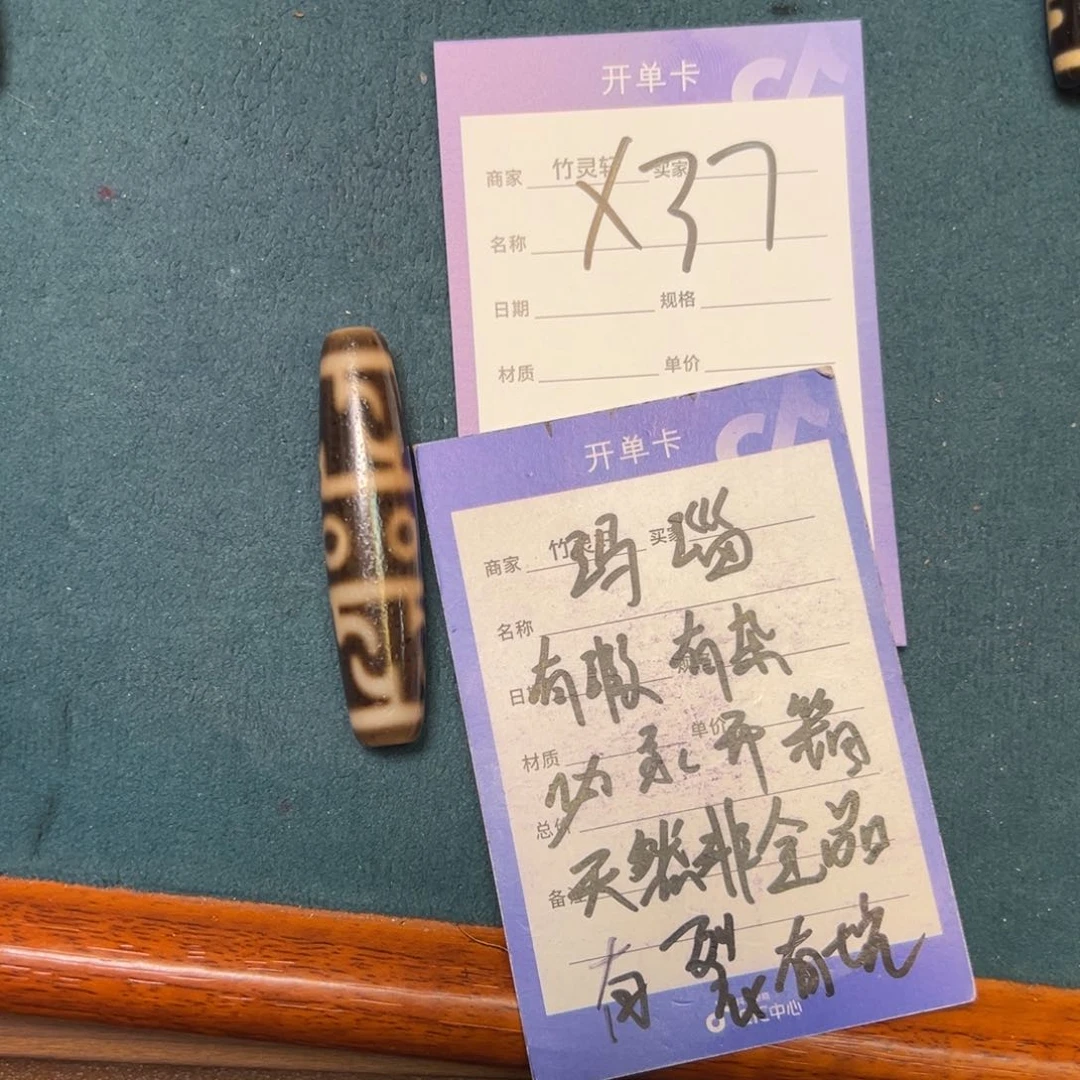 开单卡
商家 竹灵轩 买家
X37
名称
日期 规格
材质 单价
开单卡
商家 竹灵 买家
玛瑙
名称
有瑕有杂
日期
材质 单价
开箱
总价
天然非全品
备注
有裂有坑
中心